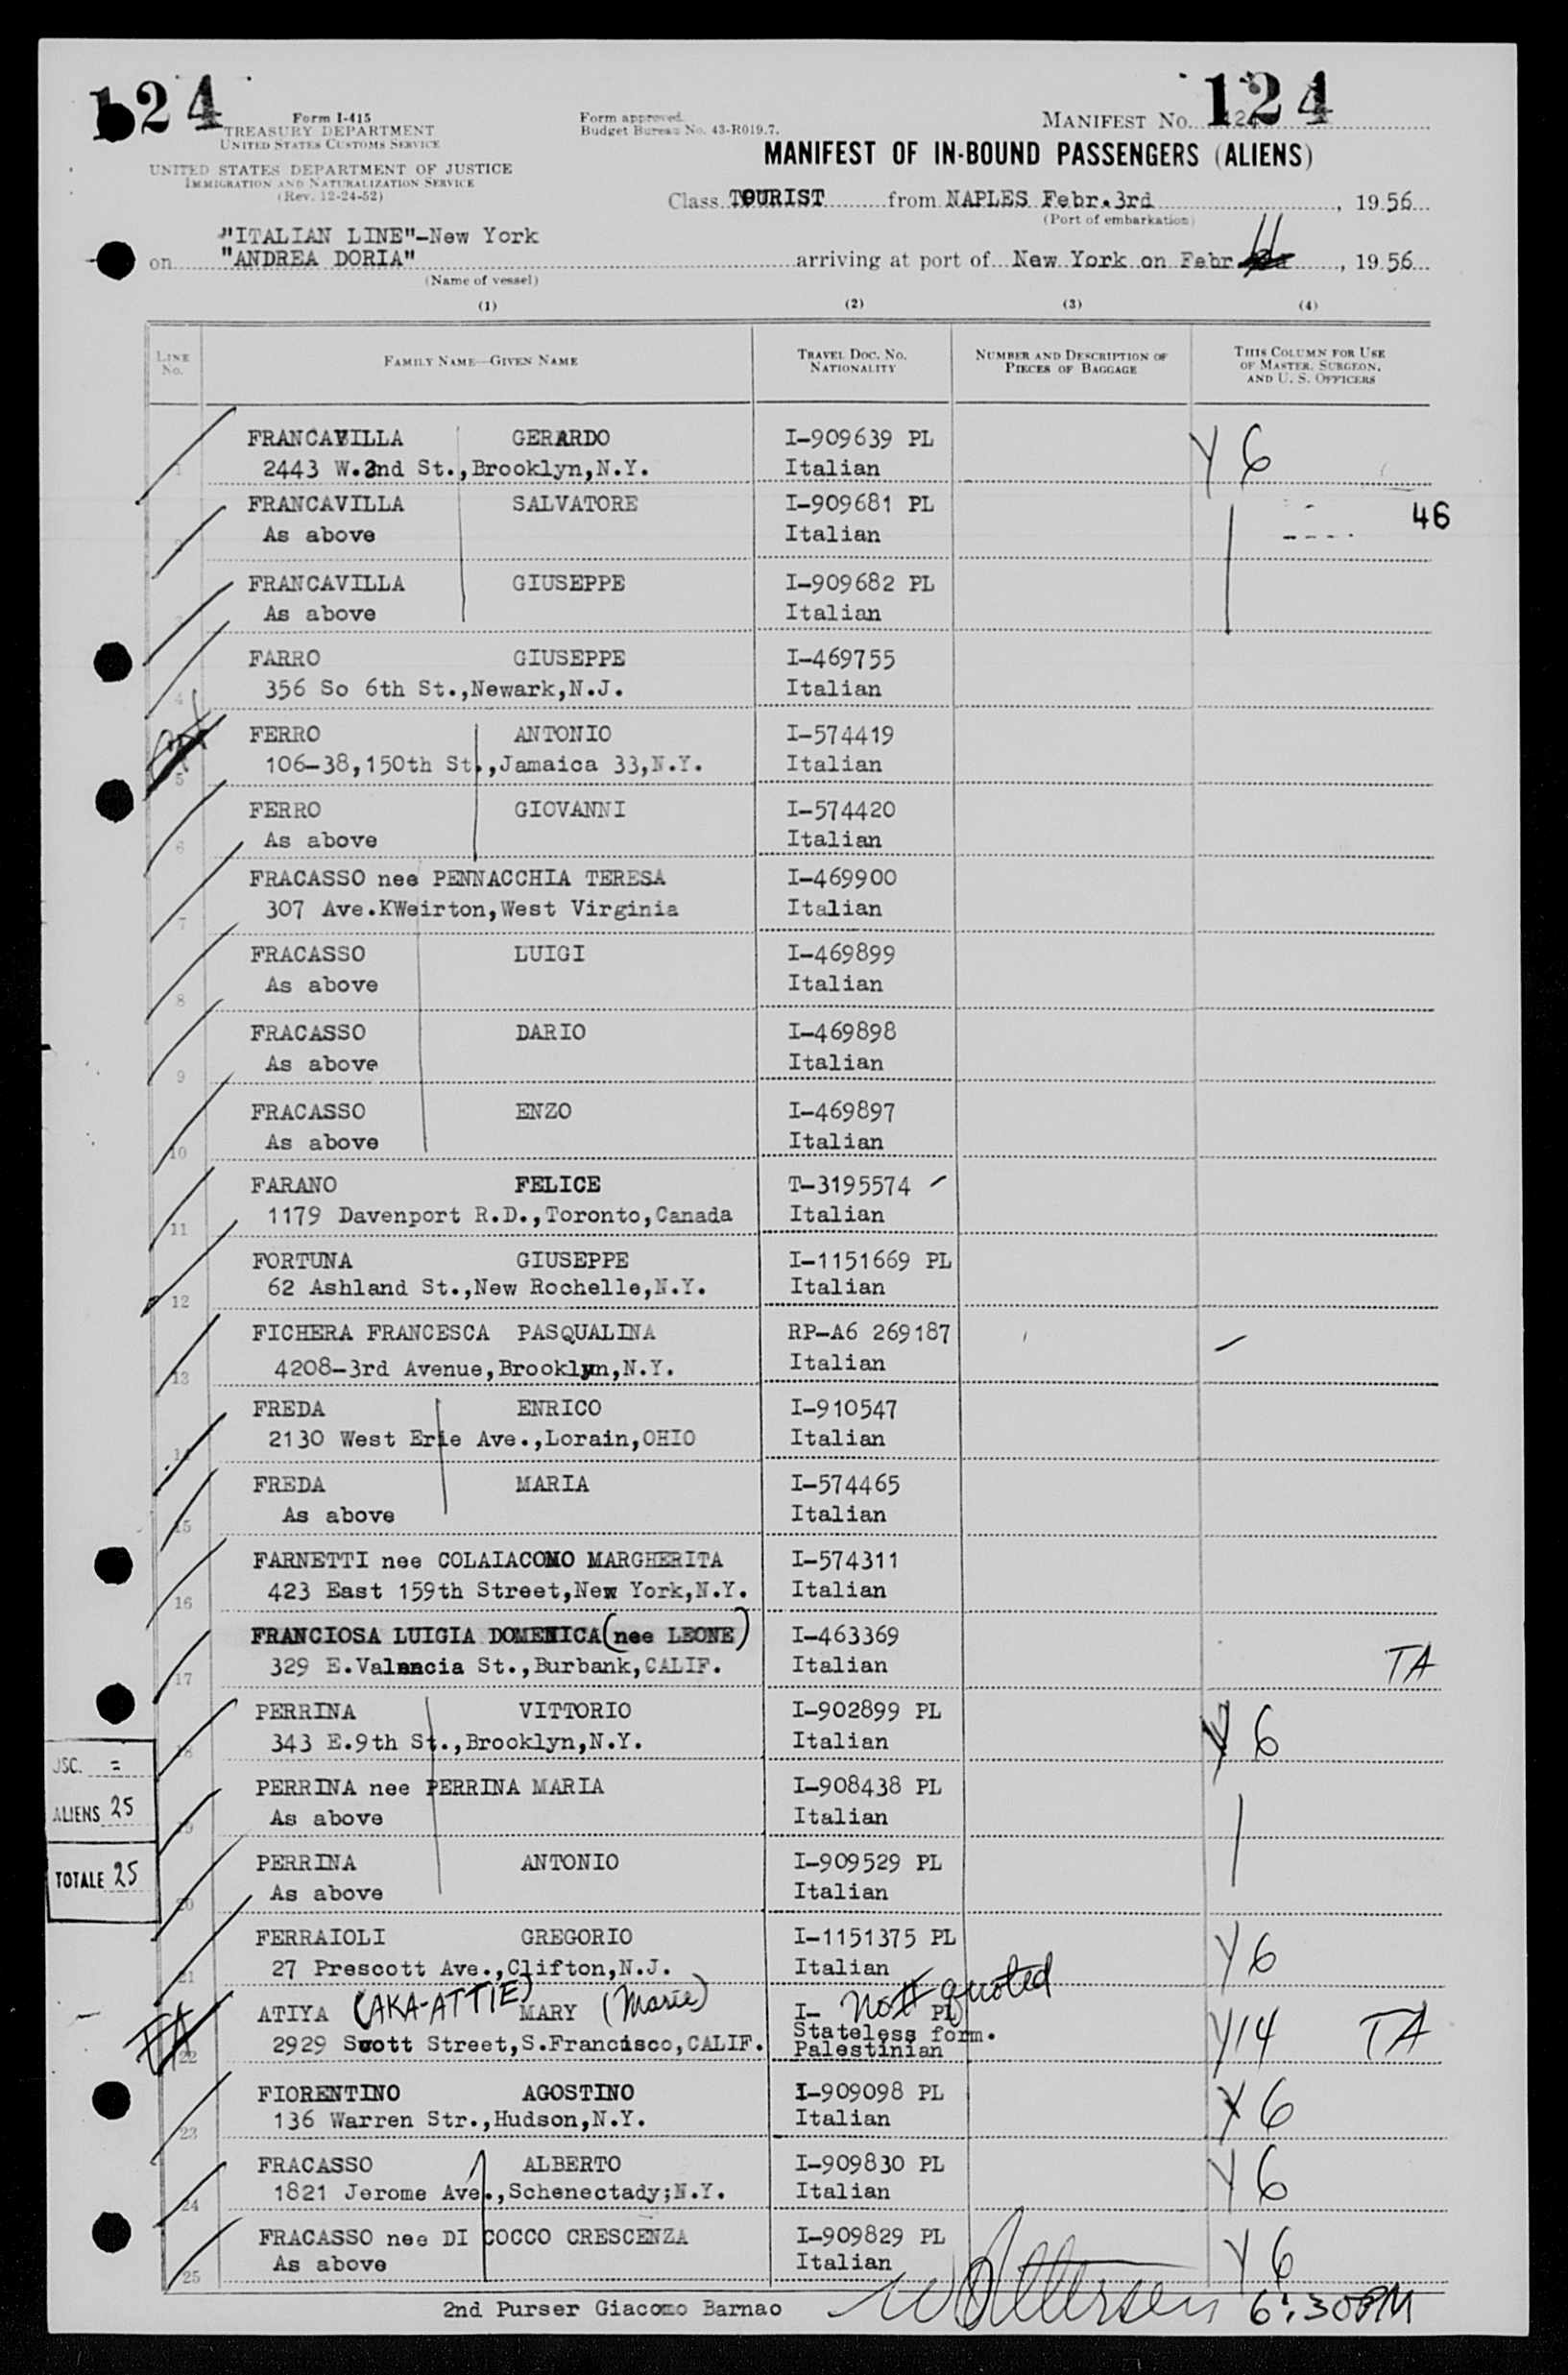 124
124
Form I-415
TREASURY DEPARTMENT
UNITED STATES CUSTOMS SERVICE
UNITED STATES DEPARTMENT OF JUSTICE
IMMIGRATION AND NATURALIZATION SERVICE
(Rev. 12-24-52)
Form approved.
Budget Bureau No. 43-R019.7.
MANIFEST NO. 124
MANIFEST OF IN-BOUND PASSENGERS (ALIENS)
Class TOURIST from NAPLES Febr.3rd, 1956
(Port of embarkation)
"ITALIAN LINE"-New York
on "ANDREA DORIA" arriving at port of New York on Febr 11, 1956
(Name of vessel)
(1) (2) (3) (4)
LINE NO. FAMILY NAME—GIVEN NAME TRAVEL DOC. NO. NATIONALITY NUMBER AND DESCRIPTION OF PIECES OF BAGGAGE THIS COLUMN FOR USE OF MASTER, SURGEON, AND U. S. OFFICERS
FRANCAVILLA GERARDO I-909639 PL Y 6
1 2443 W.2nd St.,Brooklyn,N.Y. Italian
FRANCAVILLA SALVATORE I-909681 PL 46
2 As above Italian
FRANCAVILLA GIUSEPPE I-909682 PL
3 As above Italian
FARRO GIUSEPPE I-469755
4 356 So 6th St.,Newark,N.J. Italian
FERRO ANTONIO I-574419
5 106-38,150th St.,Jamaica 33,N.Y. Italian
FERRO GIOVANNI I-574420
6 As above Italian
FRACASSO nee PENNACCHIA TERESA I-469900
7 307 Ave.KWeirton,West Virginia Italian
FRACASSO LUIGI I-469899
8 As above Italian
FRACASSO DARIO I-469898
9 As above Italian
FRACASSO ENZO I-469897
10 As above Italian
FARANO FELICE T-3195574
11 1179 Davenport R.D.,Toronto,Canada Italian
FORTUNA GIUSEPPE I-1151669 PL
12 62 Ashland St.,New Rochelle,N.Y. Italian
FICHERA FRANCESCA PASQUALINA RP-A6 269187
13 4208-3rd Avenue,Brooklyn,N.Y. Italian
FREDA ENRICO I-910547
14 2130 West Erie Ave.,Lorain,OHIO Italian
FREDA MARIA I-574465
15 As above Italian
FARNETTI nee COLAIACOMO MARGHERITA I-574311
16 423 East 159th Street,New York,N.Y. Italian
FRANCIOSA LUIGIA DOMENICA (nee LEONE) I-463369
17 329 E.Valencia St.,Burbank,CALIF. Italian TA
PERRINA VITTORIO I-902899 PL Y 6
18 343 E.9th St.,Brooklyn,N.Y. Italian
PERRINA nee PERRINA MARIA I-908438 PL
19 As above Italian
PERRINA ANTONIO I-909529 PL
20 As above Italian
USC. =
ALIENS 25
TOTALE 25
FERRAIOLI GREGORIO I-1151375 PL Y 6
21 27 Prescott Ave.,Clifton,N.J. Italian
ATIYA (AKA-ATTIE) MARY (Marie) I- not quoted PL
22 2929 Scott Street,S.Francisco,CALIF. Stateless form. Palestinian Y14 TA
TA
FIORENTINO AGOSTINO I-909098 PL Y 6
23 136 Warren Str.,Hudson,N.Y. Italian
FRACASSO ALBERTO I-909830 PL Y 6
24 1821 Jerome Ave.,Schenectady;N.Y. Italian
FRACASSO nee DI COCCO CRESCENZA I-909829 PL Y 6
25 As above Italian
2nd Purser Giacomo Barnao 6:30PM